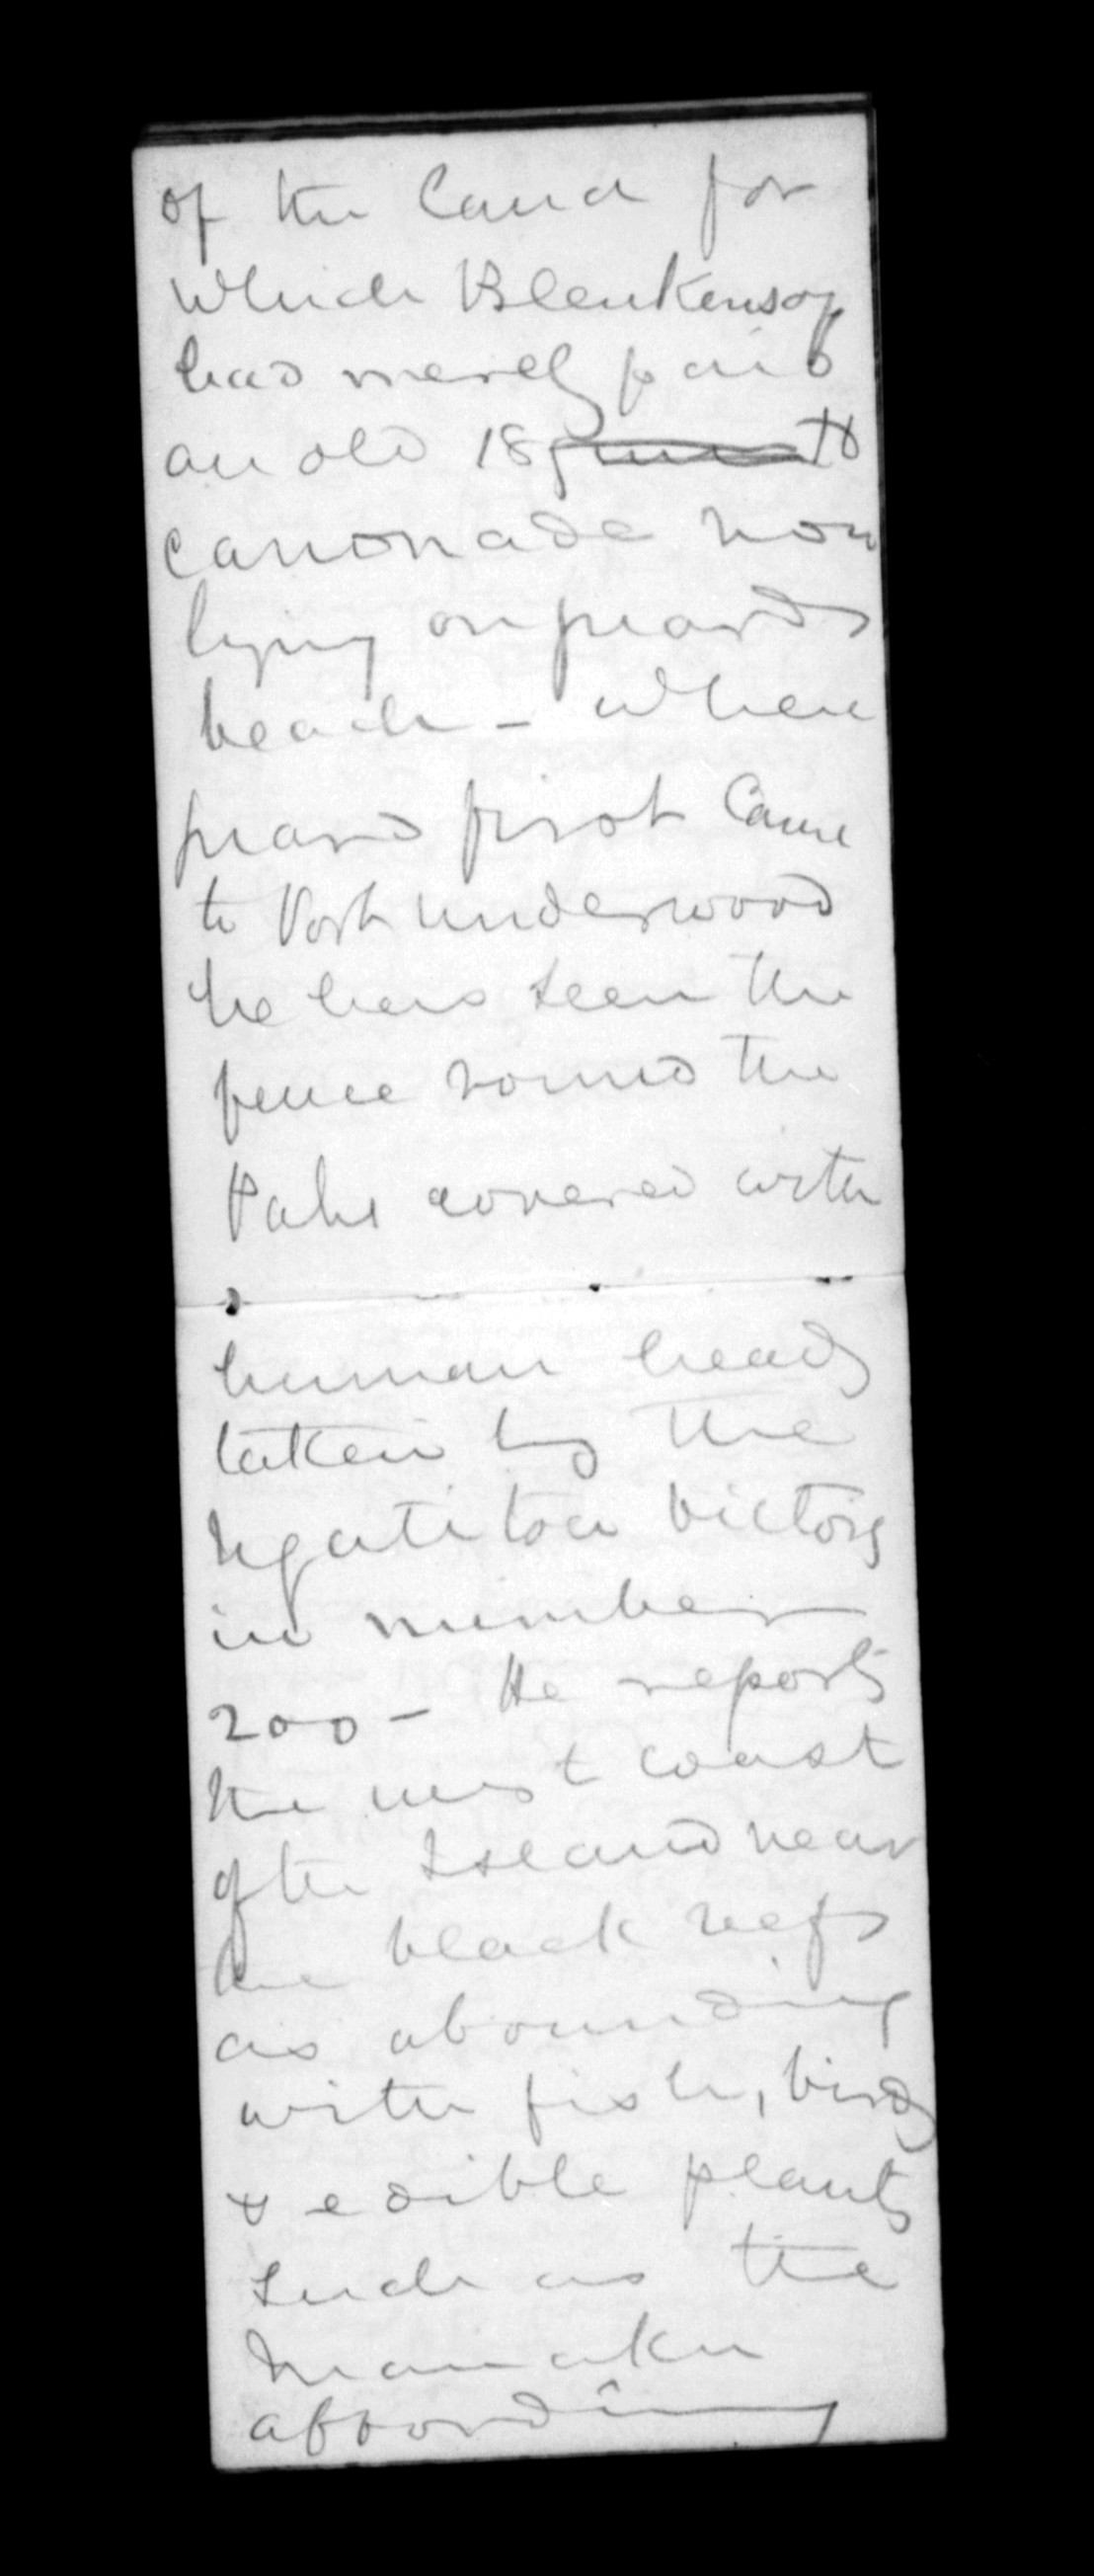 of the land for
which Blenkensop
had merely paid
an old 18 lb
carronade now
lying on guards
beach - when
guard first came
to Port underwood
he has seen the
fence round the
Pahs covered with
human heads
taken by the
Ngatitoa victors
in number
200 - He reports
the west coast
of the Island near
the black reefs
as abounding
with fish, birds
& edible plants
such as the
Mamaku
affording